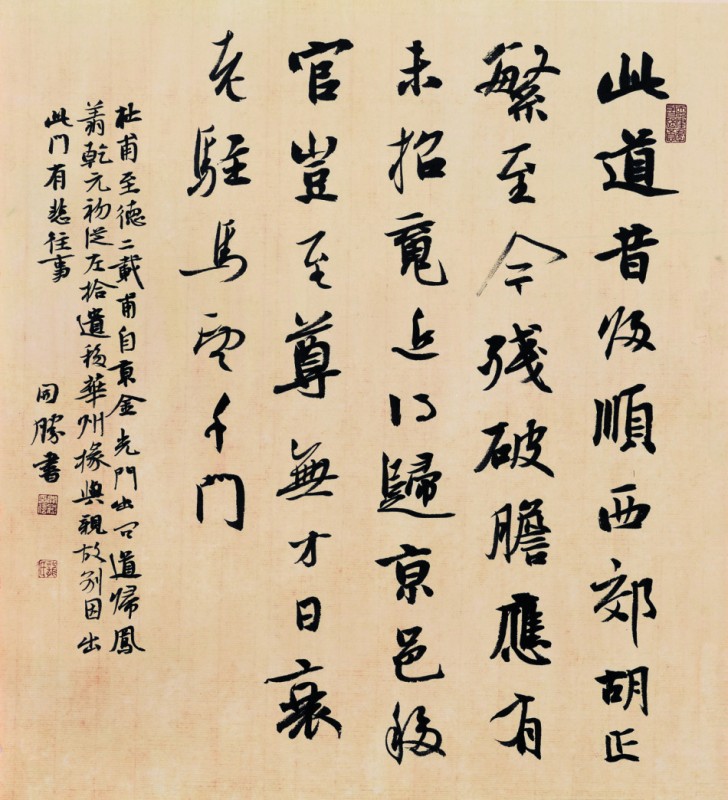 此道昔归順西郊胡正
繁至今残破膽應有
未招魂近得歸京邑移
官豈至尊無才日衰
老駐馬望千門
杜甫至德二載甫自京金光門出间道帰鳳
翔乾元初從左拾遺移華州掾與親故別因出
此门有悲往事
同勝書